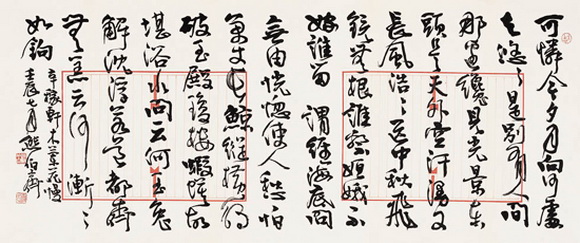 可憐今夕月向何處
去悠悠是別有人間
那邊纔見光景東
頭是天外空汗漫但
長風浩浩送中秋飛
鏡無根誰繫姮娥不
嫁誰留 謂經海底問
無由恍惚使人愁怕
萬丈長鯨縱橫觸
破玉殿瓊樓蝦蟆故
堪浴水問云何玉兔
解沈浮若道都齊
無恙云何漸漸
如鉤
辛稼軒木蘭花慢
壬辰七月